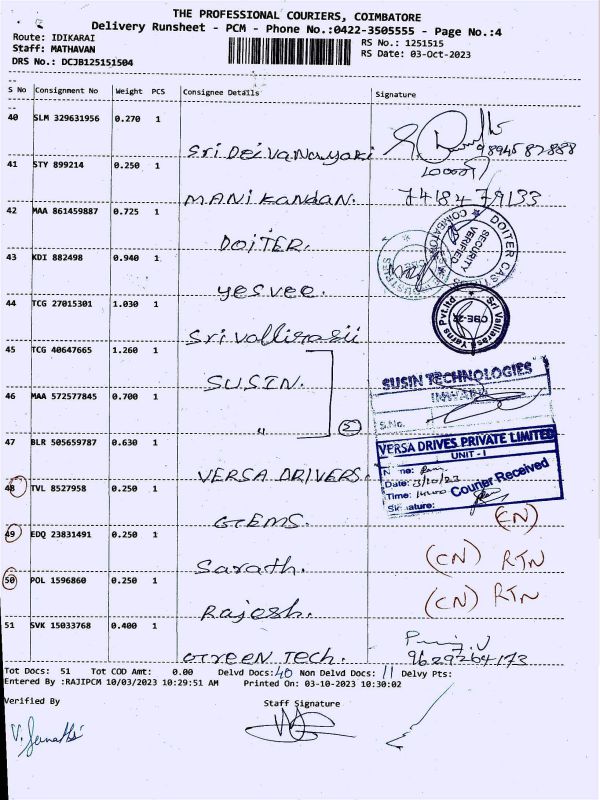 THE PROFESSIONAL COURIERS, COIMBATORE
Delivery Runsheet - PCM - Phone No.:0422-3505555 - Page No.:4
Route: IDIKARAI
Staff: MATHAVAN
DRS No.: DCJB125151504
RS No.: 1251515
RS Date: 03-Oct-2023
S No Consignment No Weight PCS Consignee Details Signature
40 SLM 329631956 0.270 1
Sri Deivanayaki 9894587888
41 STY 899214 0.250 1
MANikandan. 7418479133
42 MAA 861459887 0.725 1
DOITER.
DOITER CAS
SECURITY VERIFIED
COIMBATORE
43 KDI 882498 0.940 1
yesvee.
44 TCG 27015301 1.030 1
Sri Vallirasii
Sri Valliarasi Yarns Pvt.ltd
CBE-25
45 TCG 40647665 1.260 1
SUSIN.
SUSIN TECHNOLOGIES
INWARD
S.No.
46 MAA 572577845 0.700 1
"
47 BLR 505659787 0.630 1
VERSA DRIVERS.
VERSA DRIVES PRIVATE LIMITED
UNIT - I
Name:
Date: 3/10/23
Time:
Signature:
Courier Received
48 TVL 8527958 0.250 1
GTEMS. (CN)
49 EDQ 23831491 0.250 1
Sarath. (CN) RTN
50 POL 1596860 0.250 1
Rajesh. (CN) RTN
51 SVK 15033768 0.400 1
GTREEN TECh. 9629264173
Tot Docs: 51 Tot COD Amt: 0.00 Delvd Docs: 40 Non Delvd Docs: 11 Delvy Pts:
Entered By :RAJIPCM 10/03/2023 10:29:51 AM Printed On: 03-10-2023 10:30:02
Verified By Staff Signature